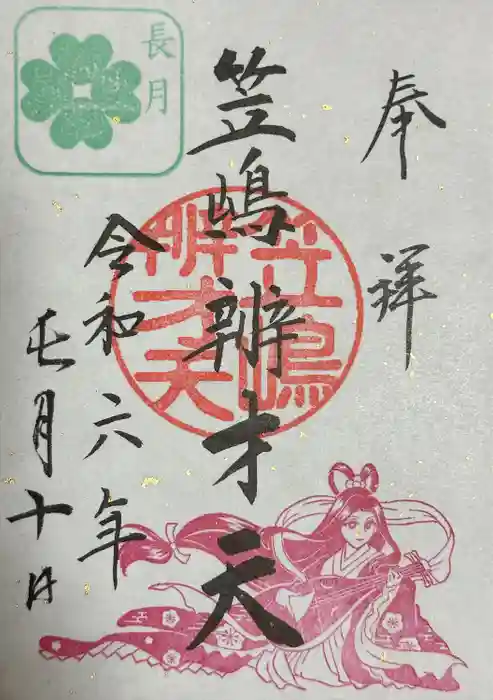 奉祥
笠嶋辨才天
笠嶋
辨才天
令和六年
長月十日
長月